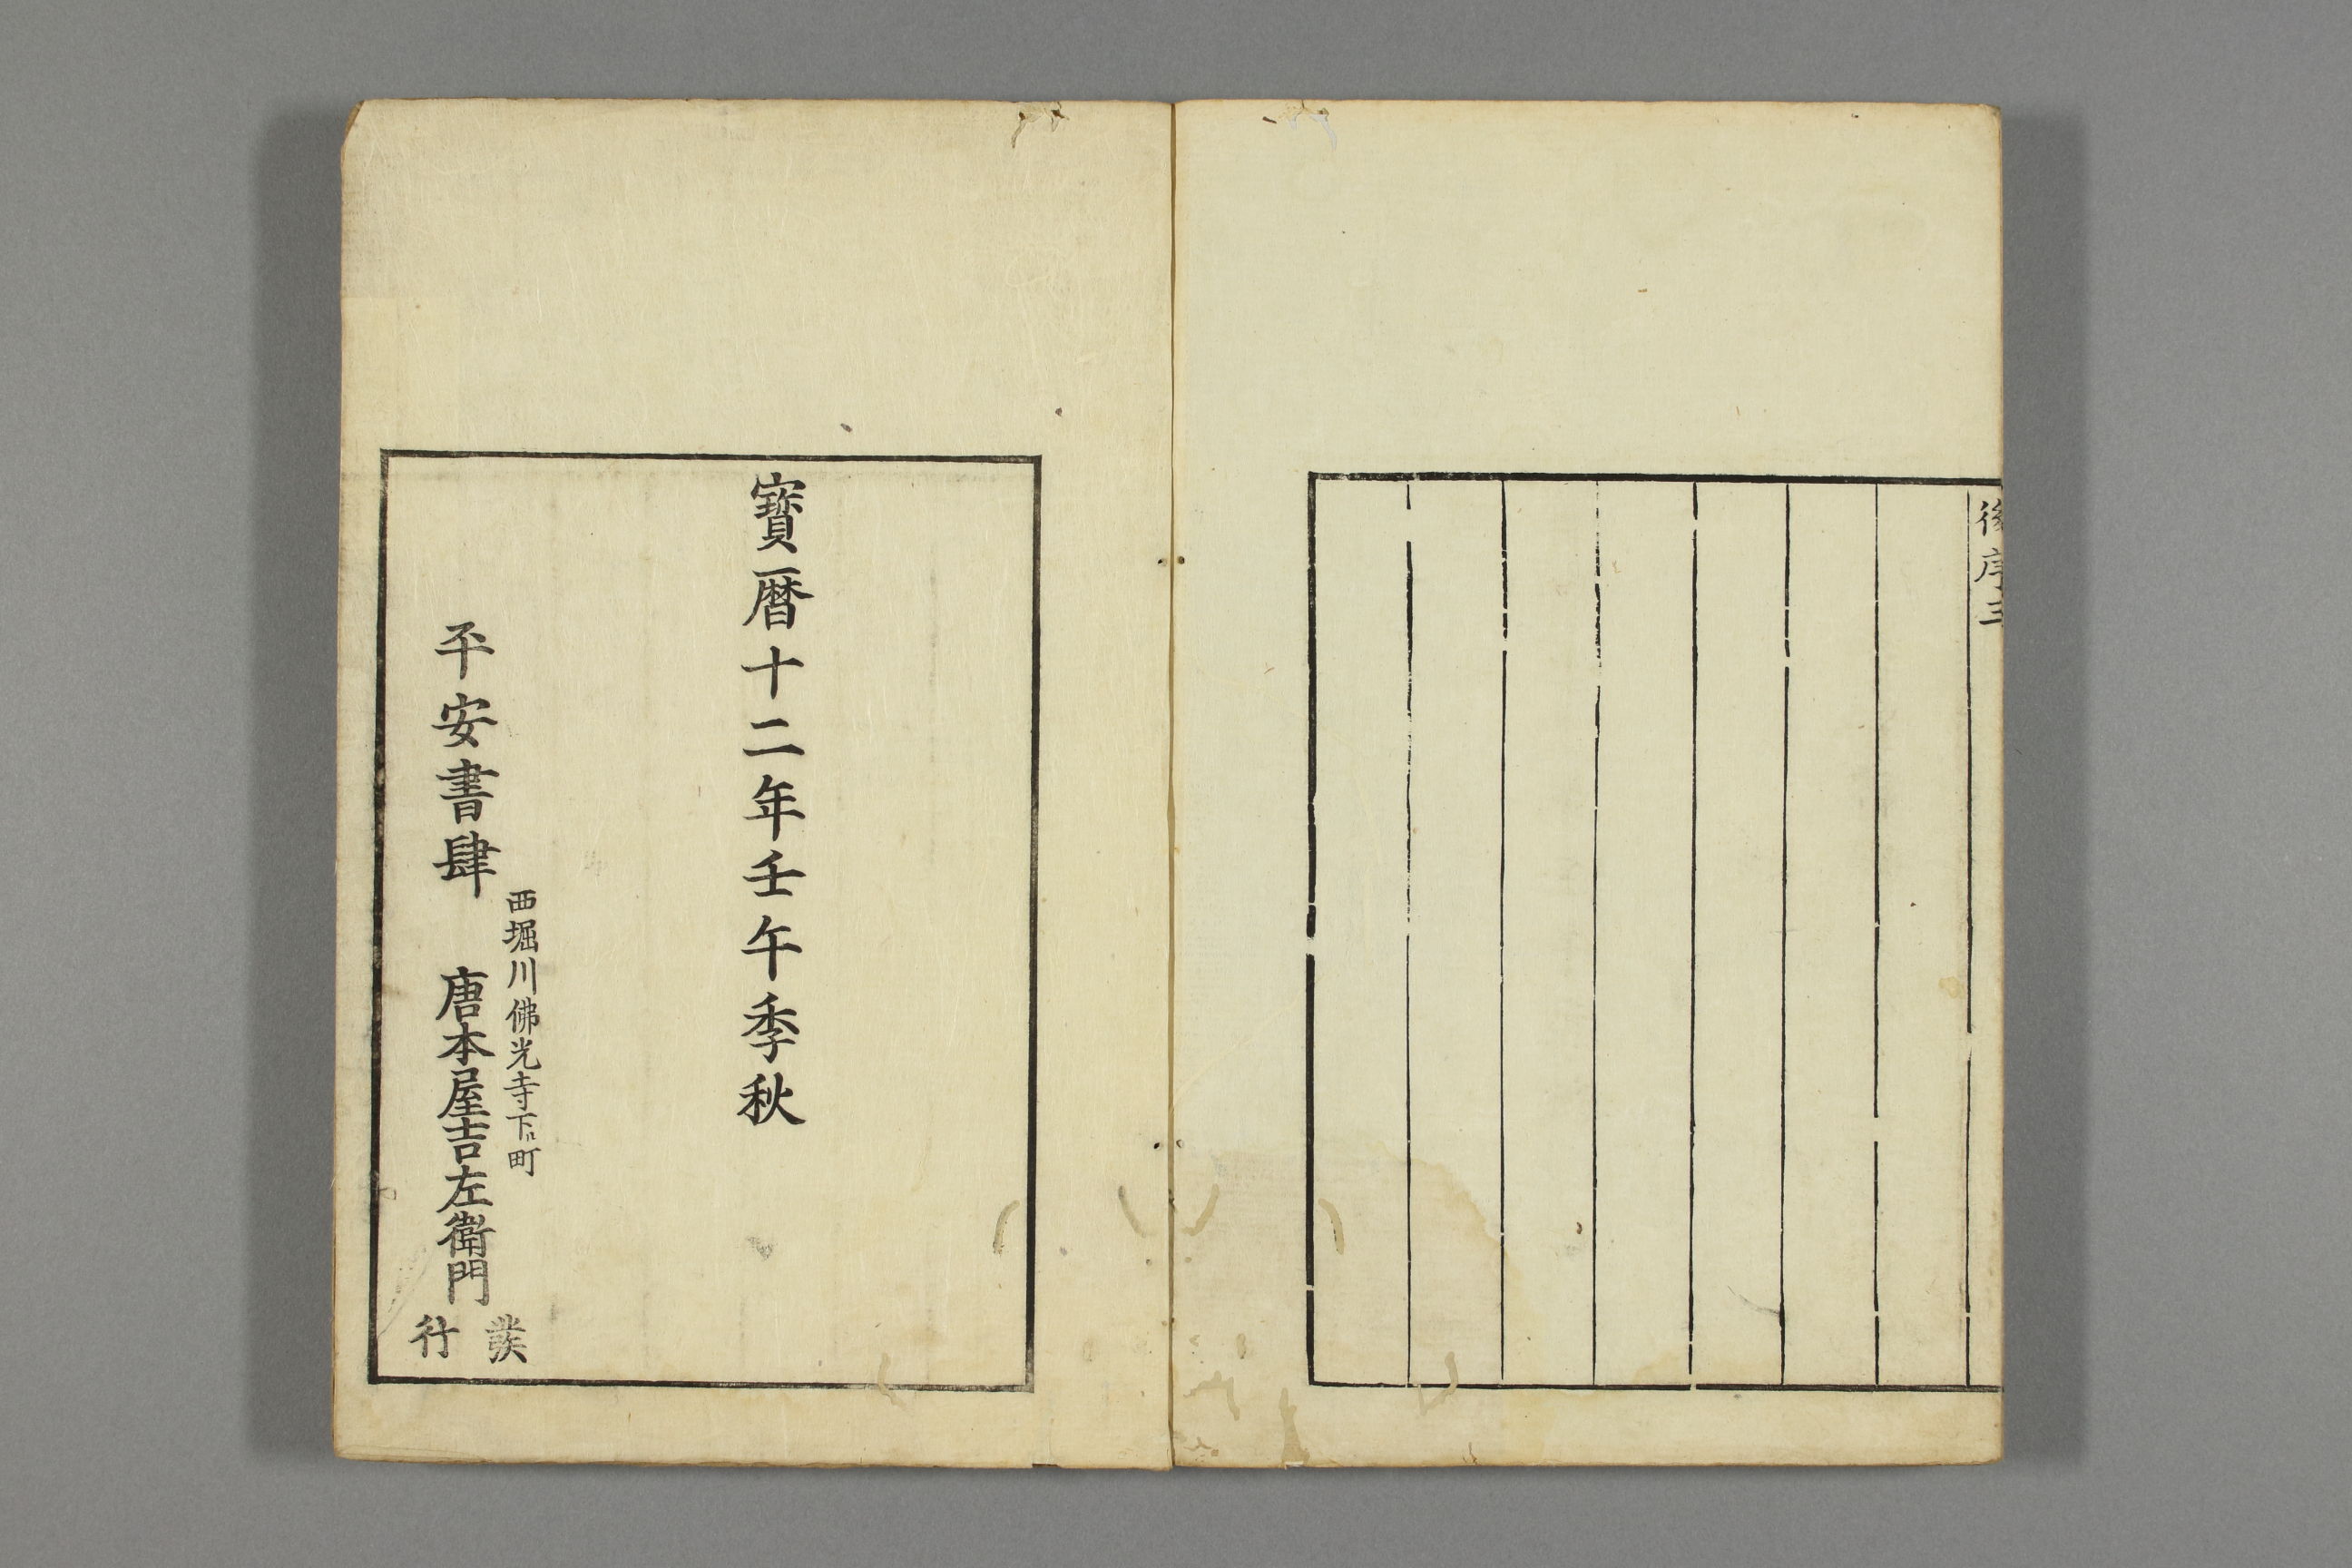 後序三
寶曆十二年壬午季秋
西堀川佛光寺下ル町
平安書肆 唐本屋吉左衛門 發行